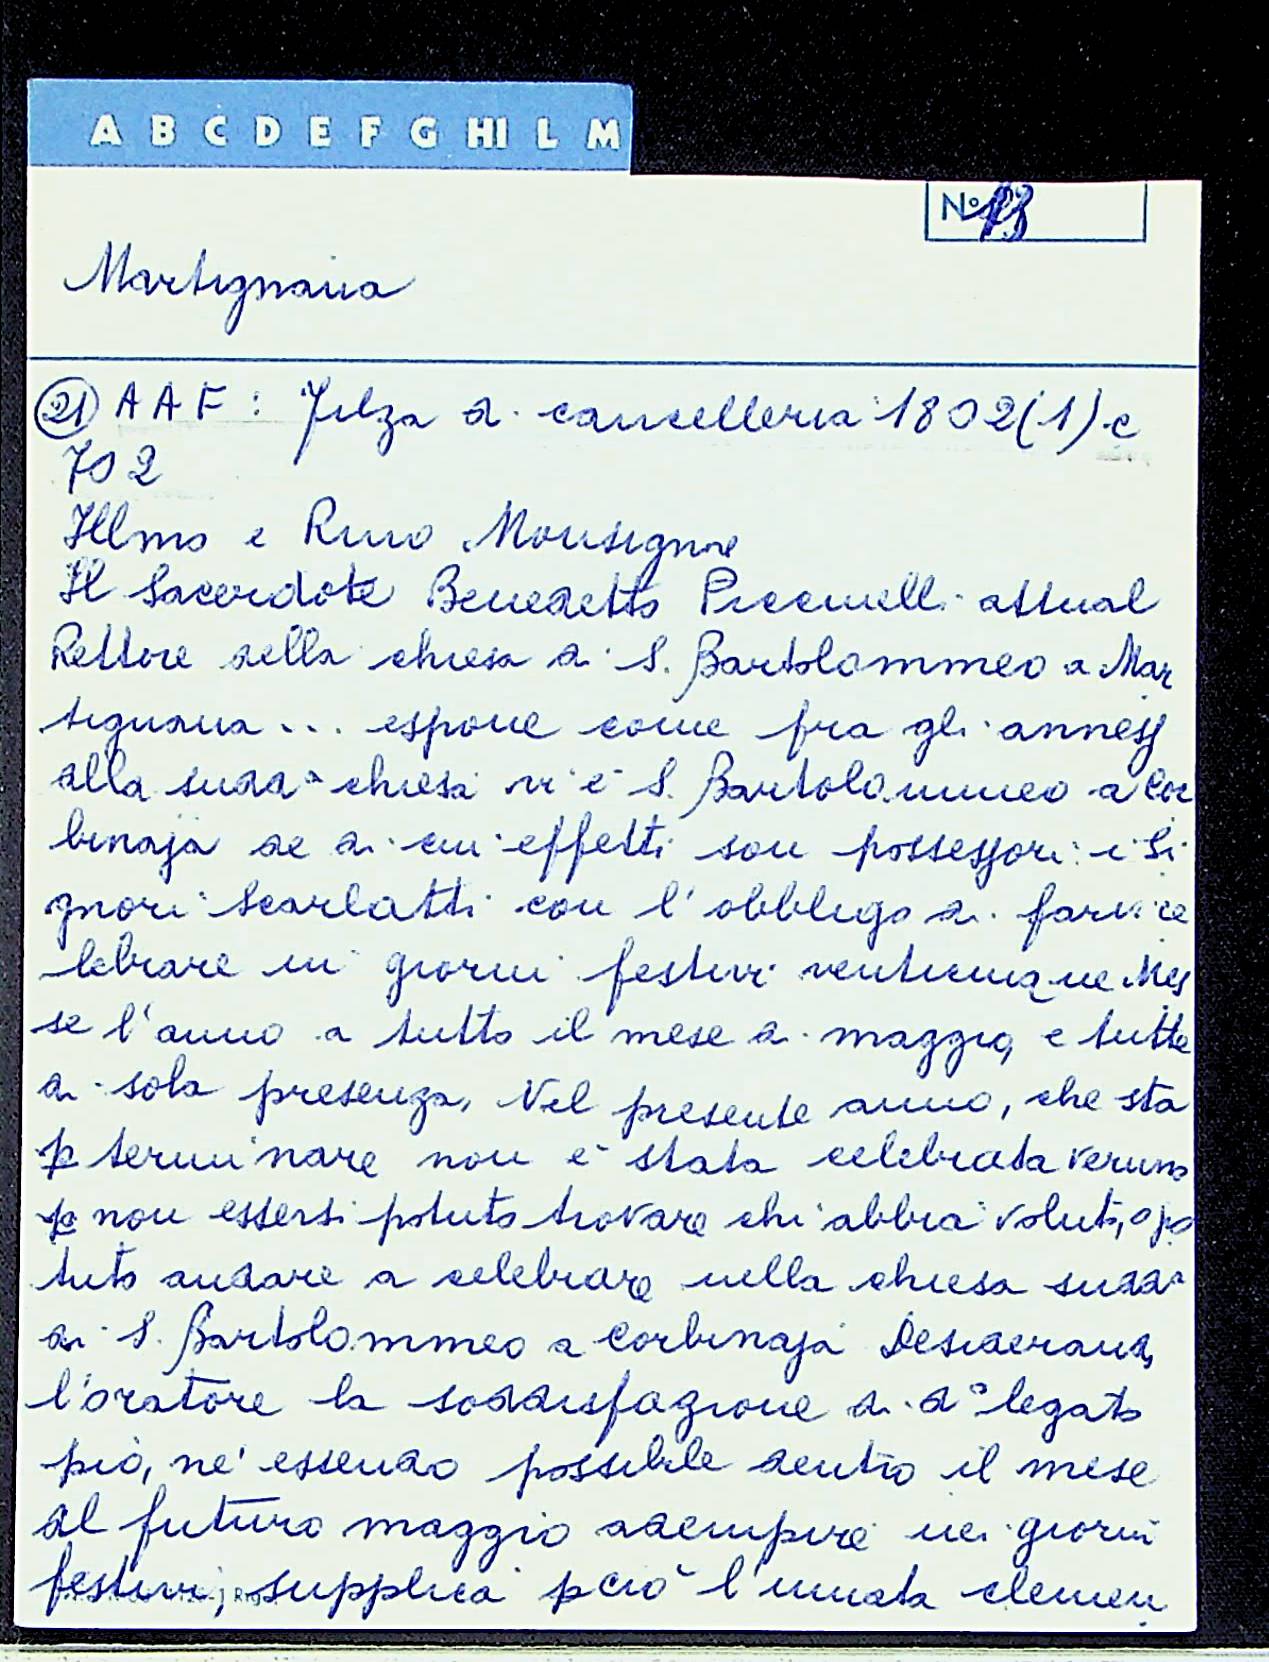 A B C D E F G HI L M
N° 13
Martignana
21 AAF: Filza di cancelleria 1802(1) c
702
Illmo e Rmo Monsignore
Il Sacerdote Benedetto Piccinelli attual
Rettore della chiesa di S. Bartolommeo a Mar
tignana ... espone come fra gli annessi
alla sudda chiesa vi è S. Bartolommeo a Cor
binaja de di cui effetti son possessori i Si
gnori Scarlatti con l'obbligo di farvi ce
lebrare in giorni festivi venticinque Mes
se l'anno a tutto il mese di maggio, e tutte
di sola presenza. Nel presente anno, che sta
p terminare non è stata celebrata veruna
p non essersi potuto trovare chi abbia voluto, o po
tuto andare a celebrare nella chiesa sudda
di S. Bartolommeo a Corbinaja Desiderando
l'oratore la soddisfazione di do legato
pio, né essendo possibile dentro il mese
di futuro maggio adempire nei giorni
festivi, supplica pciò l'innata clemen